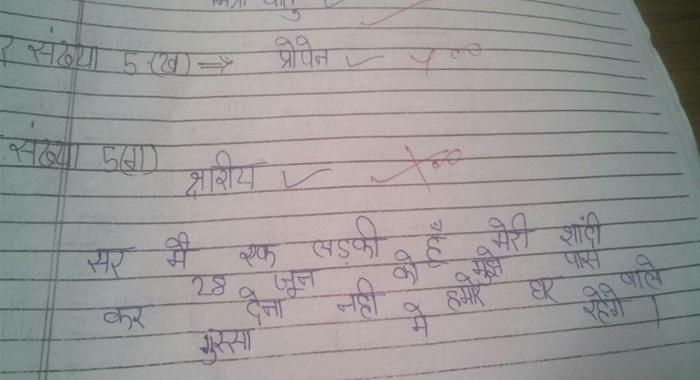 मिश्र धातु
र संख्या 5 (ख) ⇒ प्रोपेन
संख्या 5(ग)
क्षारीय
सर मैं एक लड़की हूँ मेरी शादी
28 जून को मुझे पास
कर देना नही हमारे घर वाले
गुस्सा में रहेंगे।